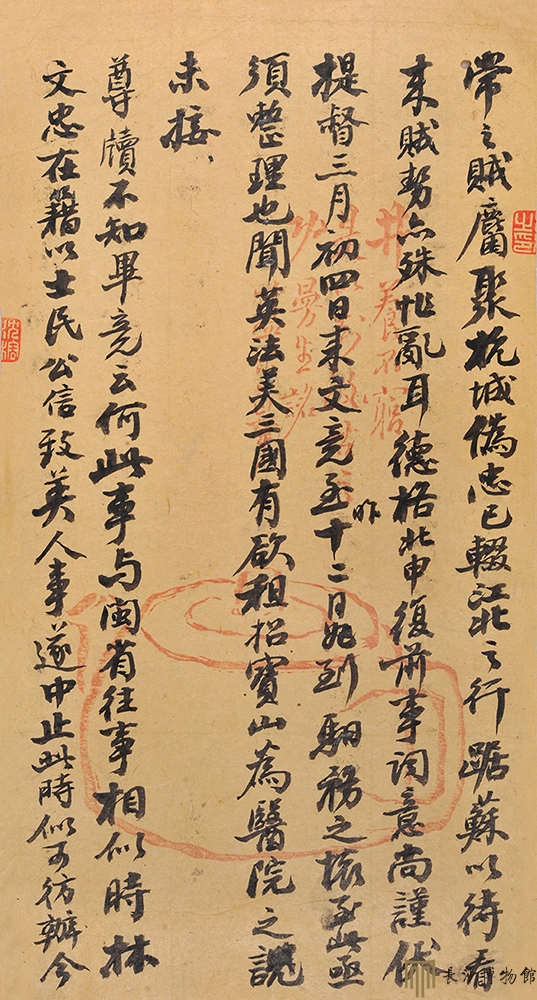 常之賊麕聚杭城偽忠已輟江北之行踞蘇以待看
來賊勢亦殊忙亂耳德格北申復前事詞意尚謹伏
提督三月初四日來文竟至昨十二日始到驛務之壞至此亟
須整理也聞英法美三國有欲租招寶山為醫院之說
未接
尊牘不知畢竟云何此事與閩省往事相似時林
文忠在籍以士民公信致英人事遂中止此時似可仿辦今
井養不窮
曼生銘
長江博物館